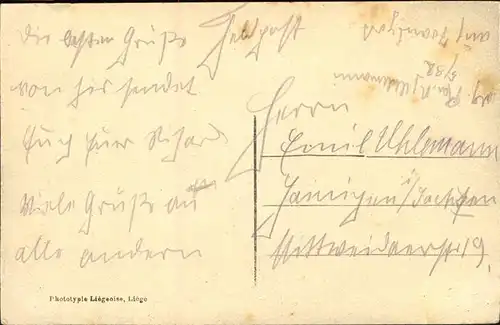 Die besten Grüße
von hier sendet
Euch Euer Richard
Viele Grüße an
alle andern
Feldpost
Herrn
Emil Uhlemann
Hainichen i/Sachsen
Mittweidaerstr 19.
Phototypie Liégeoise, Liége